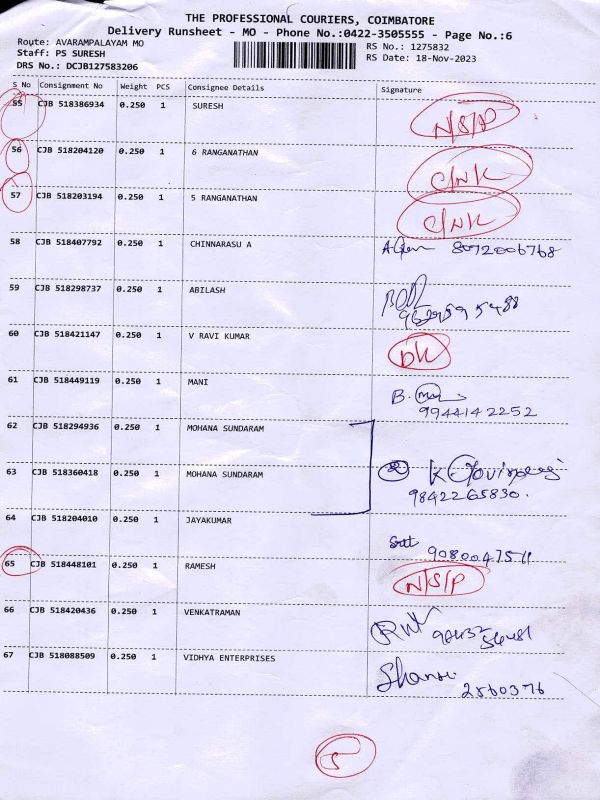 THE PROFESSIONAL COURIERS, COIMBATORE
Delivery Runsheet - MO - Phone No.:0422-3505555 - Page No.:6
Route: AVARAMPALAYAM MO
Staff: PS SURESH
DRS No.: DCJB127583206
RS No.: 1275832
RS Date: 18-Nov-2023
S No Consignment No Weight PCS Consignee Details Signature
55 CJB 518386934 0.250 1 SURESH N/S/P
56 CJB 518204120 0.250 1 6 RANGANATHAN C/NK
57 CJB 518203194 0.250 1 5 RANGANATHAN C/NK
58 CJB 518407792 0.250 1 CHINNARASU A 8072006768
59 CJB 518298737 0.250 1 ABILASH
60 CJB 518421147 0.250 1 V RAVI KUMAR DK
61 CJB 518449119 0.250 1 MANI B.
9944142252
62 CJB 518294936 0.250 1 MOHANA SUNDARAM
63 CJB 518360418 0.250 1 MOHANA SUNDARAM K Govindaraj
9842265830.
64 CJB 518204010 0.250 1 JAYAKUMAR
9080047511
65 CJB 518448101 0.250 1 RAMESH N/S/P
66 CJB 518420436 0.250 1 VENKATRAMAN
67 CJB 518088509 0.250 1 VIDHYA ENTERPRISES
2560376
5